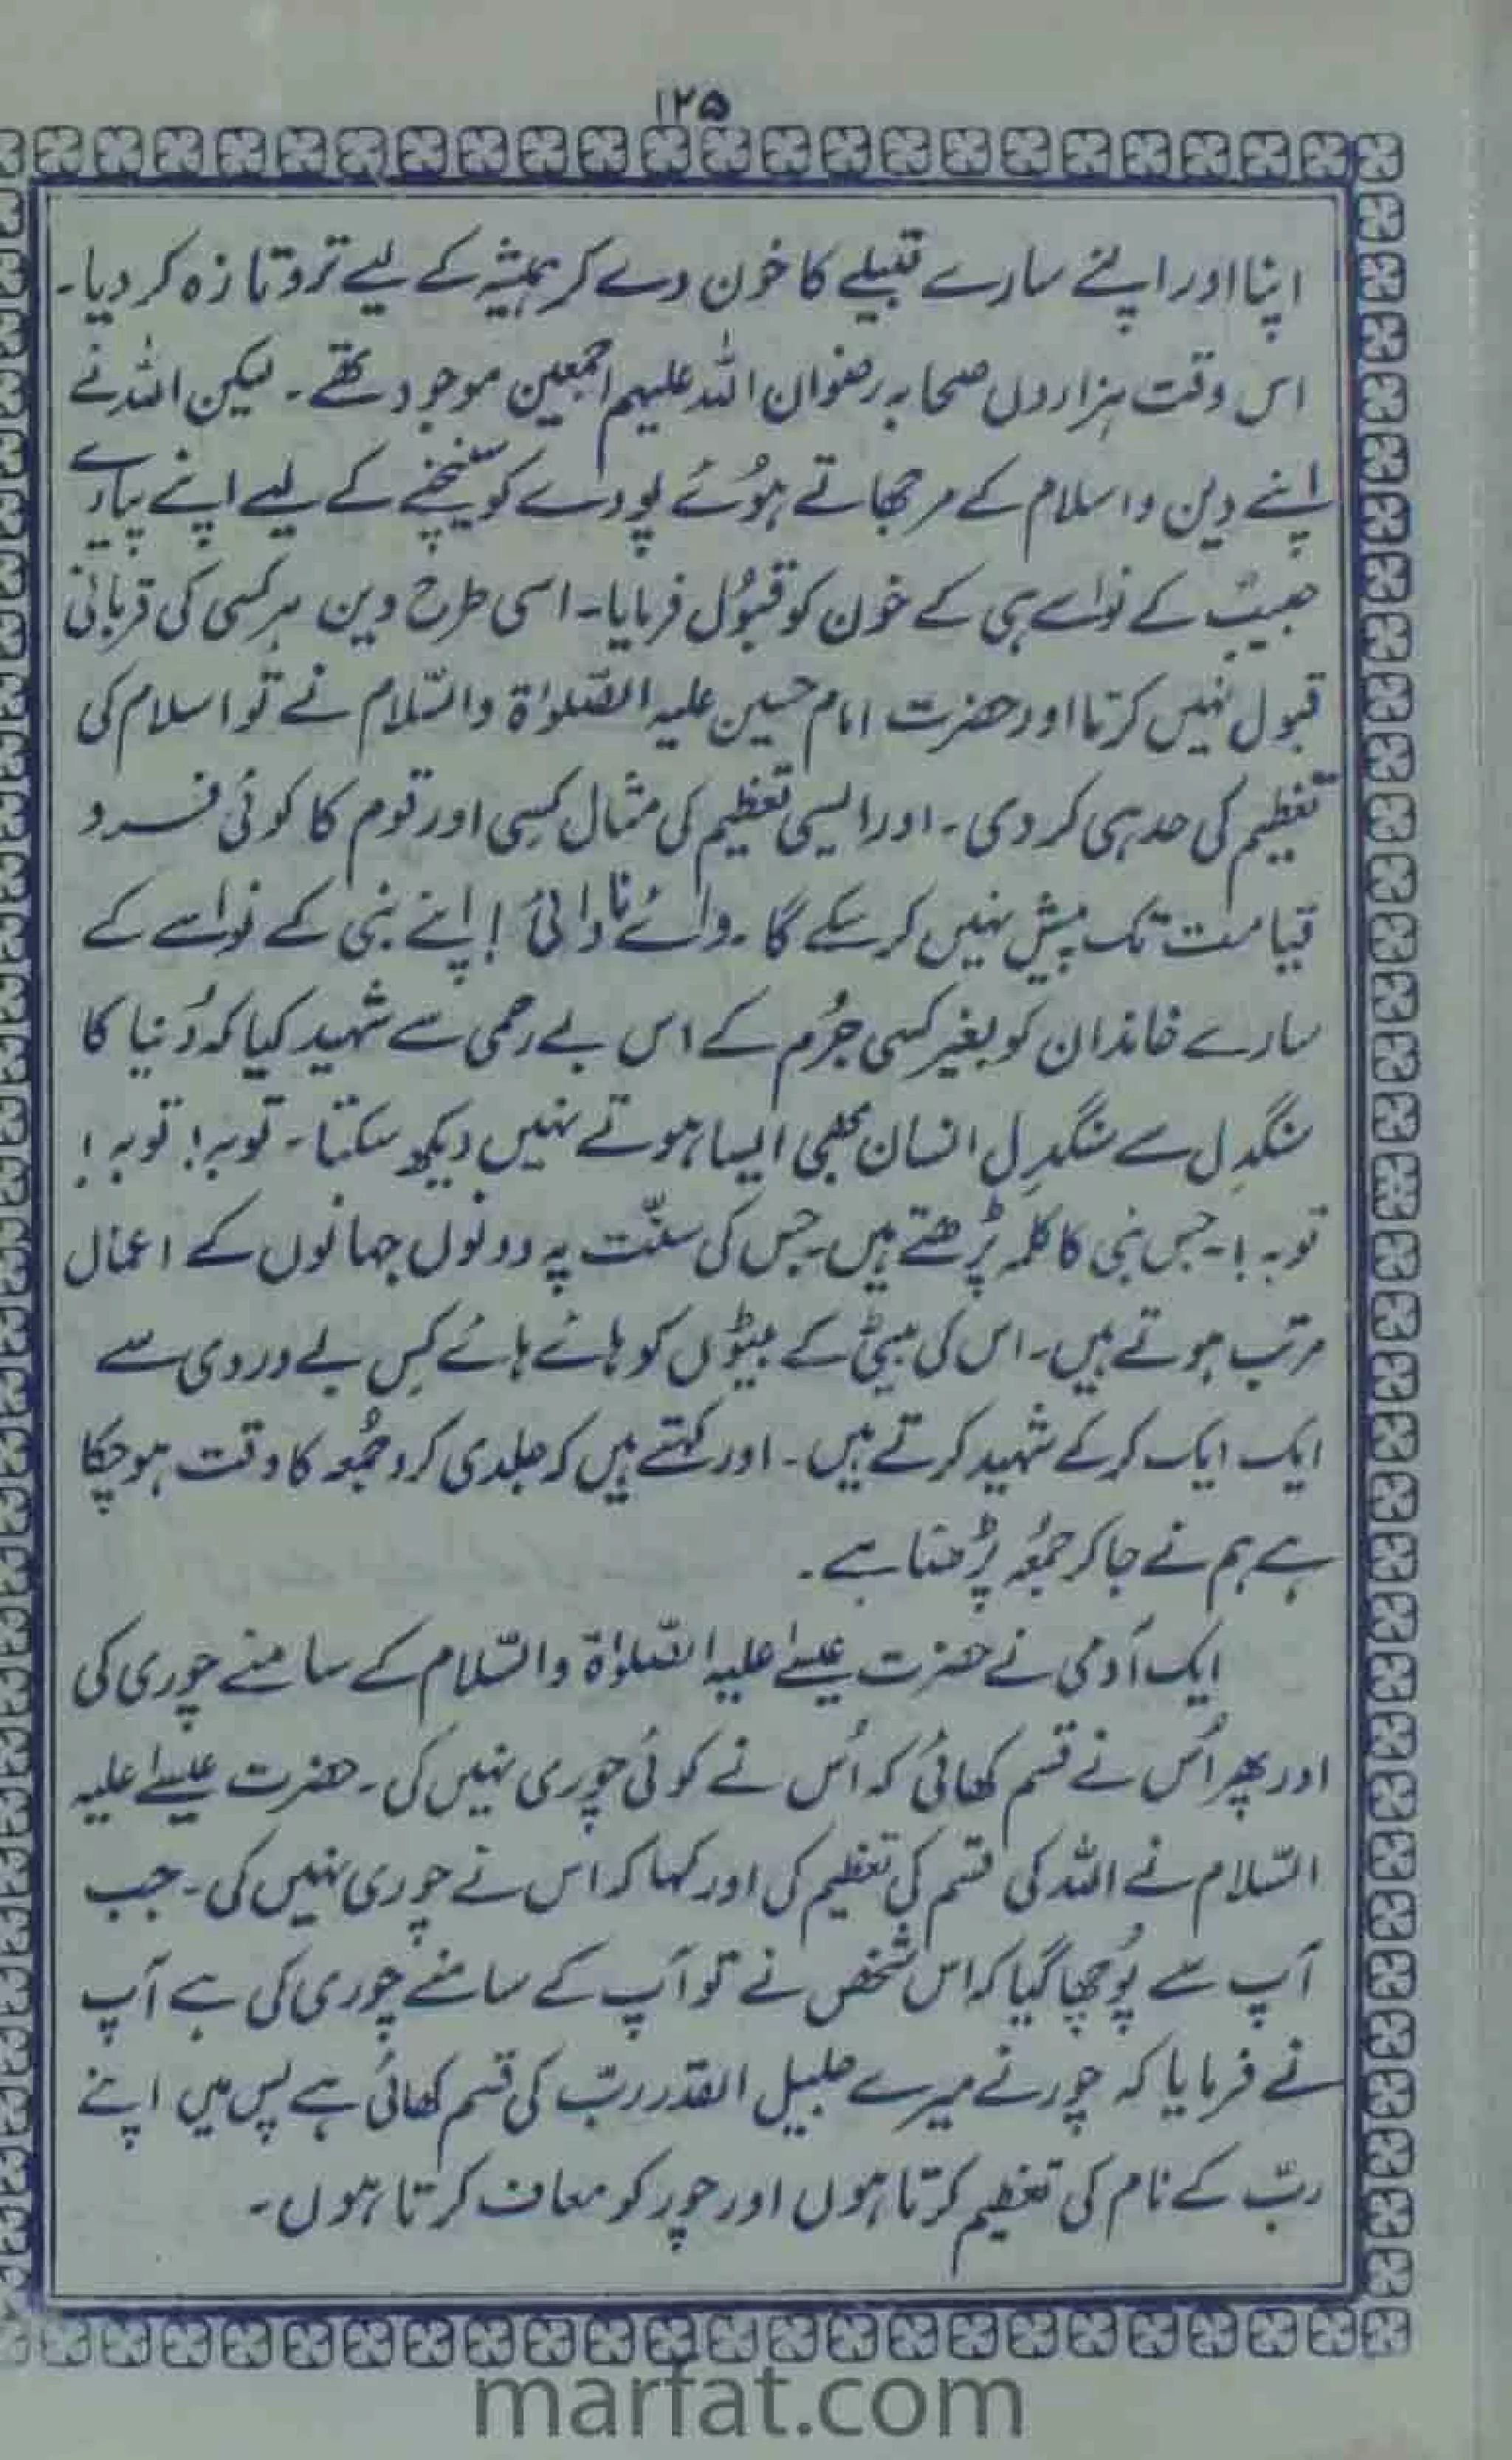 ۱۲۵
اپنا اور اپنے سارے قبیلے کا خون دے کر ہمیشہ کے لیے تروتازہ کر دیا۔
اس وقت ہزاروں صحابہ رضوان اللہ علیہم اجمعین موجود تھے۔ لیکن اللہ نے
اپنے دین و اسلام کے مرجھاتے ہوُئے پودے کو سینچنے کے لیے اپنے پیارے
حبیبؐ کے نواسے ہی کے خون کو قبوُل فرمایا۔ اسی طرح دین ہر کسی کی قربانی
قبول نہیں کرتا اور حضرت امام حسین علیہ الصّلوٰۃ والسّلام نے تو اسلام کی
تعظیم کی حد ہی کر دی۔ اور ایسی تعظیم کی مثال کسِی اور قوم کا کوئی فرد
قیامت تک پیش نہیں کر سکے گا۔ وائے نادانی! اپنے نبی کے نواسے کے
سارے خاندان کو بغیر کسی جرُم کے اس بے رحمی سے شہید کیا کہ دُنیا کا
سنگدِل سے سنگدِل انسان بھی ایسا ہوتے نہیں دیکھ سکتا۔ توبہ! توبہ!
توبہ!۔ جس نبی کا کلمہ پڑھتے ہیں۔ جس کی سنّت پہ دونوں جہانوں کے اعمال
مرتب ہوتے ہیں۔ اس کی بیٹی کے بیٹوں کو ہائے ہائے کس بے دردی سے
ایک ایک کر کے شہید کرتے ہیں۔ اور کہتے ہیں کہ جلدی کرو جمُعہ کا وقت ہو چکا
ہے ہم نے جا کر جمُعہ پڑھنا ہے۔
ایک آدمی نے حضرت عیسےٰ علیہ الصّلوٰۃ والسّلام کے سامنے چوری کی
اور پھر اُس نے قسم کھائی کہ اُس نے کوئی چوری نہیں کی۔ حضرت عیسےٰ علیہ
السّلام نے اللہ کی قسم کی تعظیم کی اور کہا کہ اس نے چوری نہیں کی۔ جب
آپ سے پوُچھا گیا کہ اس شخص نے تو آپ کے سامنے چوری کی ہے آپ
نے فرمایا کہ چور نے میرے جلیل القدر ربّ کی قسم کھائی ہے پس میں اپنے
ربّ کے نام کی تعظیم کرتا ہوں اور چور کو معاف کرتا ہوں۔
marfat.com